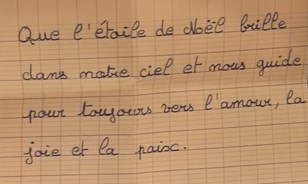 Que l'étoile de Noël brille
dans notre ciel et nous guide
pour toujours vers l'amour, la
joie et la paix.